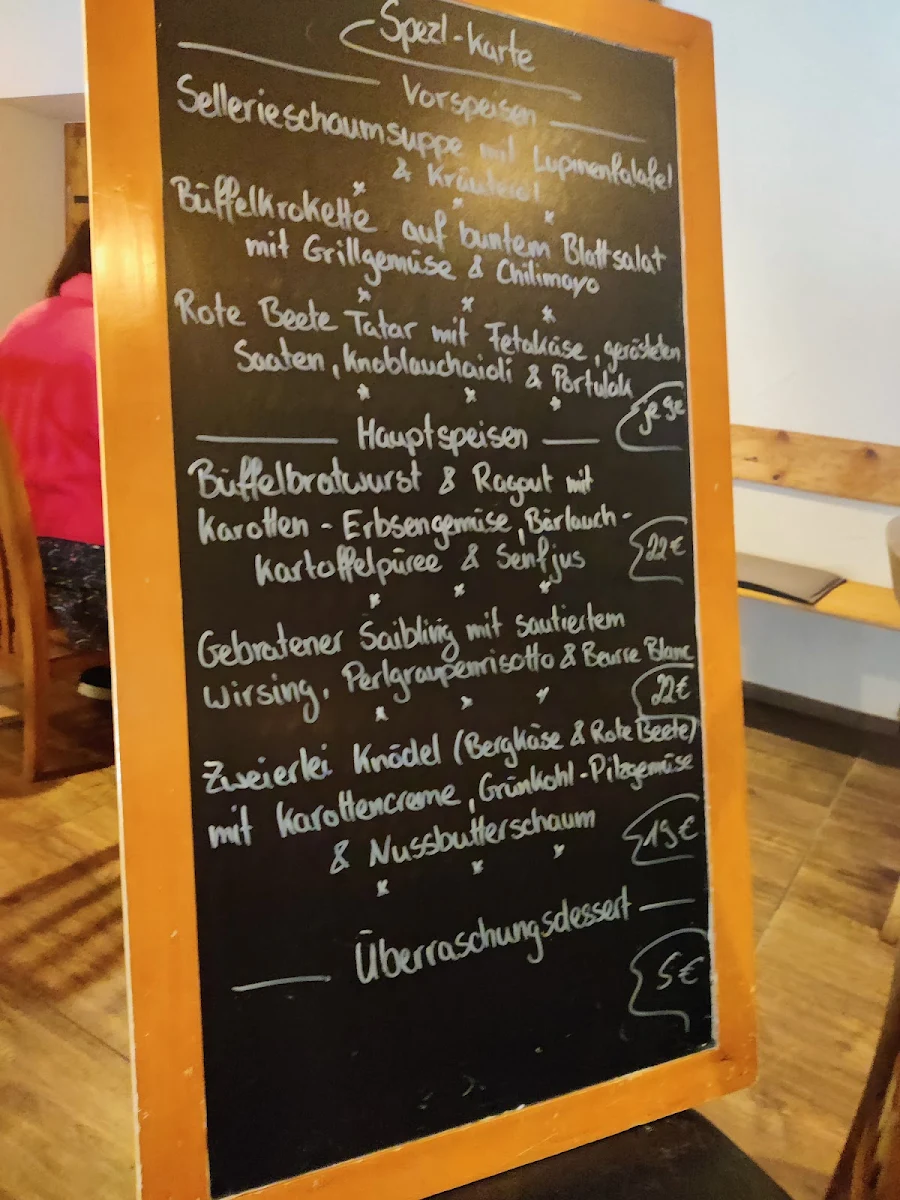 Spezl-Karte
Vorspeisen
Sellerieschaumsuppe mit Lupinenfalafel
& Kräuteröl
Büffelkrokette auf buntem Blattsalat
mit Grillgemüse & Chilimayo
Rote Beete Tatar mit Fetakäse, gerösteten
Saaten, Knoblauchaioli & Portulak
je 9€
Hauptspeisen
Büffelbratwurst & Ragout mit
Karotten-Erbsengemüse, Bärlauch-
Kartoffelpüree & Senfjus
22€
Gebratener Saibling mit sautiertem
Wirsing, Perlgraupenrisotto & Beurre Blanc
22€
Zweierlei Knödel (Bergkäse & Rote Beete)
mit Karottencreme, Grünkohl-Pilzgemüse
& Nussbutterschaum
19€
Überraschungsdessert
5€